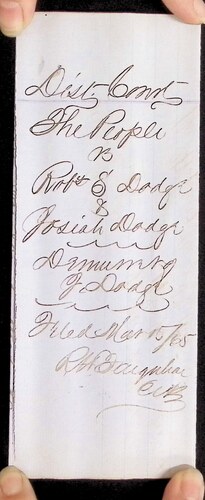 Dist Court
The People
vs
Robt E Dodge
&
Josiah Dodge
Demurrer
J Dodge
Filed Mar 15/65
R H Farquhar
Clk